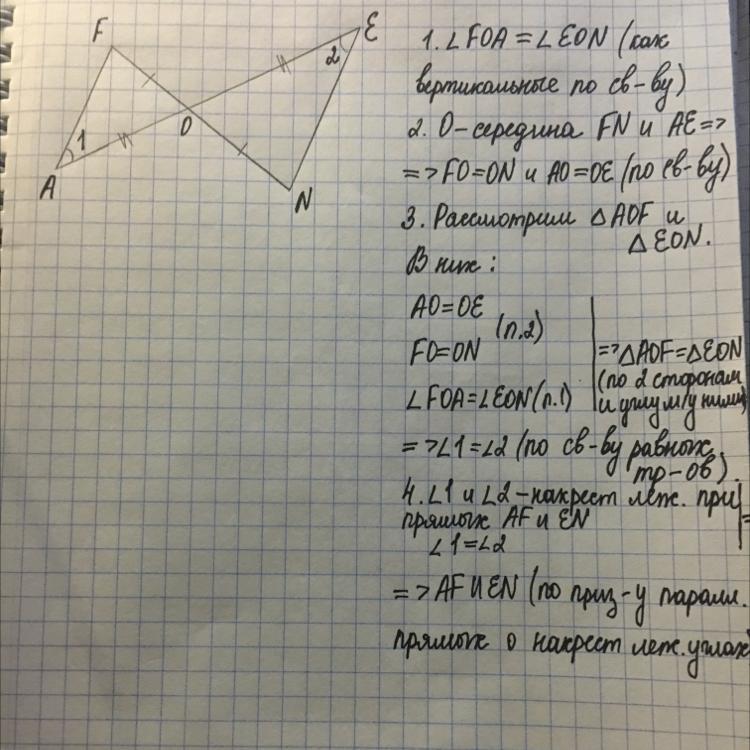 F
E
2
1
O
A
N
1. ∠FOA = ∠EON (как
вертикальные по св-ву)
2. O-середина FN и AE =>
=> FO=ON и AO=OE (по св-ву)
3. Рассмотрим △AOF и
△EON.
В них:
AO=OE
(п.2)
FO=ON
∠FOA=∠EON (п.1)
=> △AOF=△EON
(по 2 сторонам
и углу м/у ними)
=> ∠1=∠2 (по св-ву равных
тр-ов).
4. ∠1 и ∠2-накрест леж. при
прямых AF и EN
∠1=∠2
=
=> AF И EN (по приз-у паралл.
прямых о накрест леж. углах